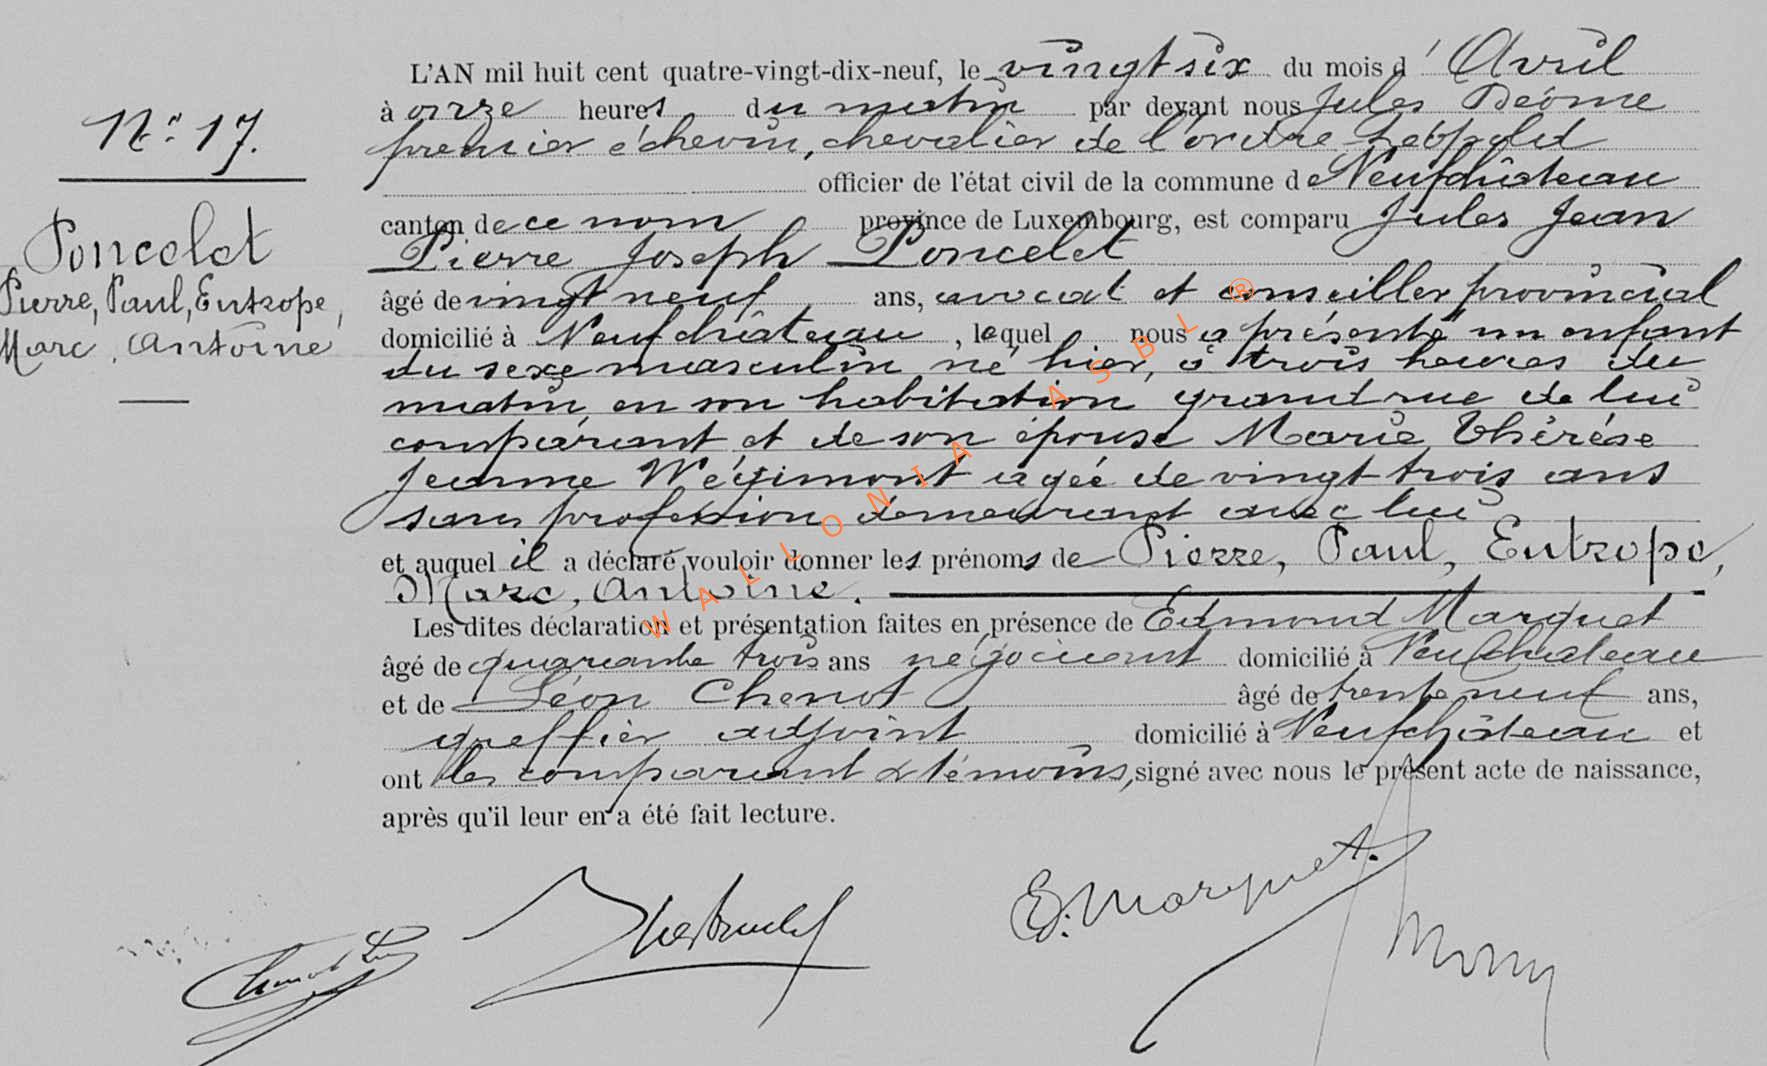 N.º 17.
Poncelet
Pierre, Paul, Eutrope,
Marc, Antoine
L'AN mil huit cent quatre-vingt-dix-neuf, le vingt six du mois d'Avril
à onze heures du matin par devant nous Jules Déome
premier échevin, chevalier de l'ordre Léopold
officier de l'état civil de la commune de Neufchâteau
canton de ce nom province de Luxembourg, est comparu Jules Jean
Pierre Joseph Poncelet
âgé de vingt neuf ans, avocat et conseiller provincial
domicilié à Neufchâteau, lequel nous a présenté un enfant
du sexe masculin né hier, à trois heures du
matin, en son habitation grand rue de lui
comparant et de son épouse Marie Thérèse
Jeanne Wégimont agée de vingt trois ans
sans profession demeurant avec lui
et auquel il a déclaré vouloir donner les prénoms de Pierre, Paul, Eutrope,
Marc, Antoine.
Les dites déclaration et présentation faites en présence de Edmond Marquet
âgé de quarante trois ans négociant domicilié à Neufchateau
et de Léon Chenot âgé de trente neuf ans,
greffier adjoint domicilié à Neufchâteau et
ont les comparant & témoins, signé avec nous le présent acte de naissance,
après qu'il leur en a été fait lecture.
E. Marquet.
WALLONIA ASBL ®